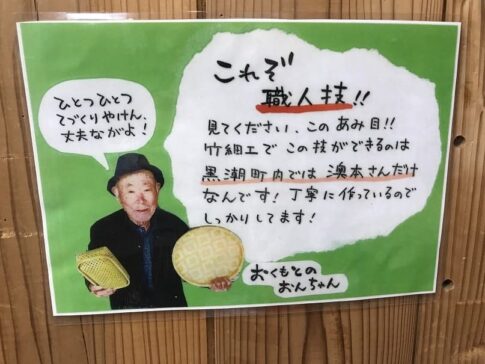 これぞ
職人技!!
見てください、このあみ目!!
竹細工でこの技ができるのは
黒潮町内では 澳本さんだけ
なんです!丁寧に作っているので
しっかりしてます!
ひとつひとつ
てづくりやけん、
丈夫ながよ!
おくもとの
おんちゃん